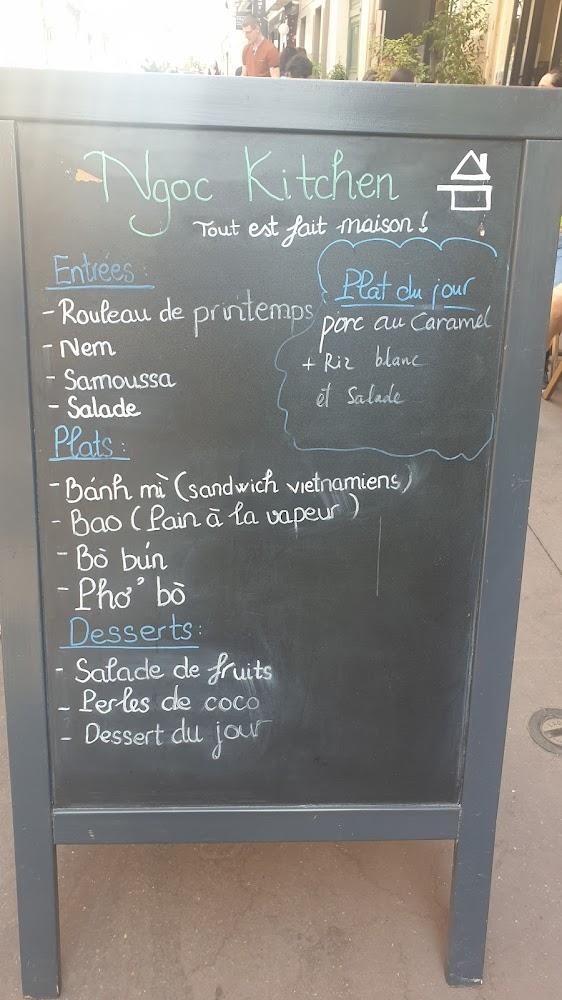 Ngoc Kitchen
Tout est fait maison !
Entrées :
- Rouleau de printemps
- Nem
- Samoussa
- Salade
Plat du jour
porc au Caramel
+ Riz blanc
et Salade
Plats :
- Bánh mì (sandwich vietnamiens)
- Bao (Pain à la vapeur)
- Bò bún
- Phở bò
Desserts :
- Salade de fruits
- Perles de coco
- Dessert du jour